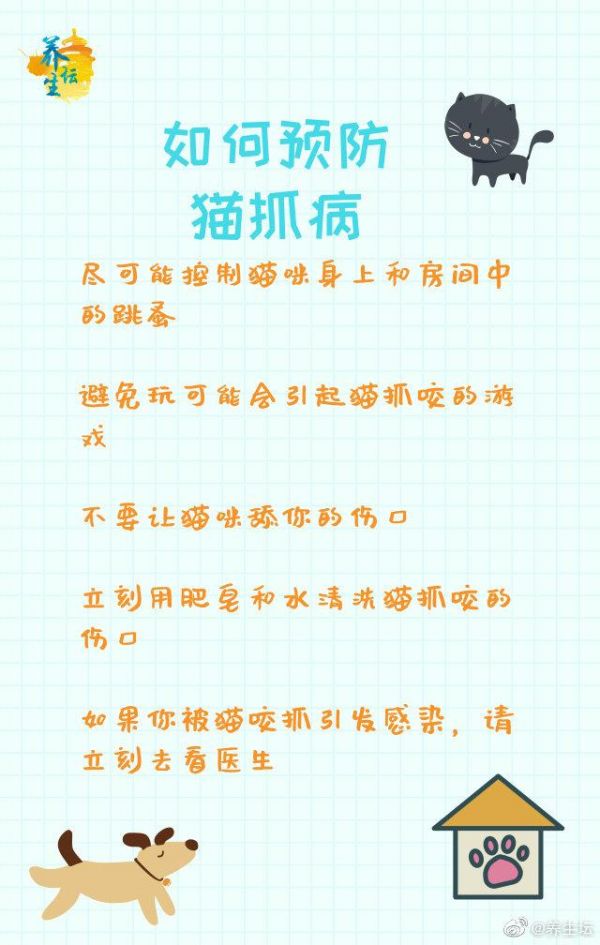 养生坛
如何预防
猫抓病
尽可能控制猫咪身上和房间中
的跳蚤
避免玩可能会引起猫抓咬的游
戏
不要让猫咪舔你的伤口
立刻用肥皂和水清洗猫抓咬的
伤口
如果你被猫咬抓引发感染，请
立刻去看医生
@养生坛